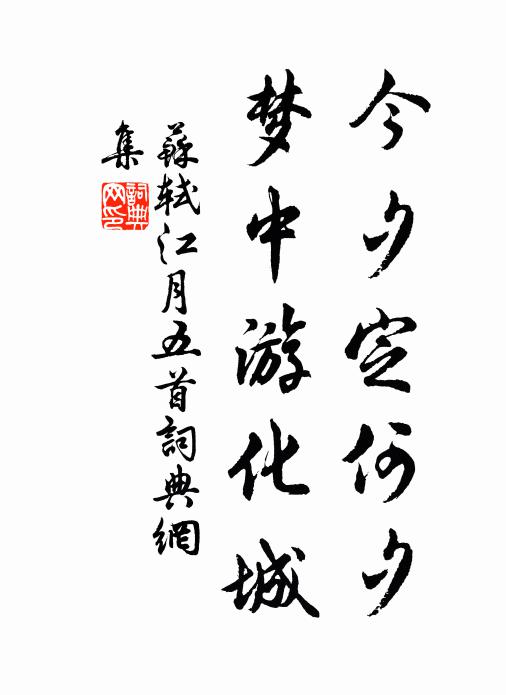 今夕定何夕
梦中游化城
蘇軾江月五首詞典網
集
詞典
网印